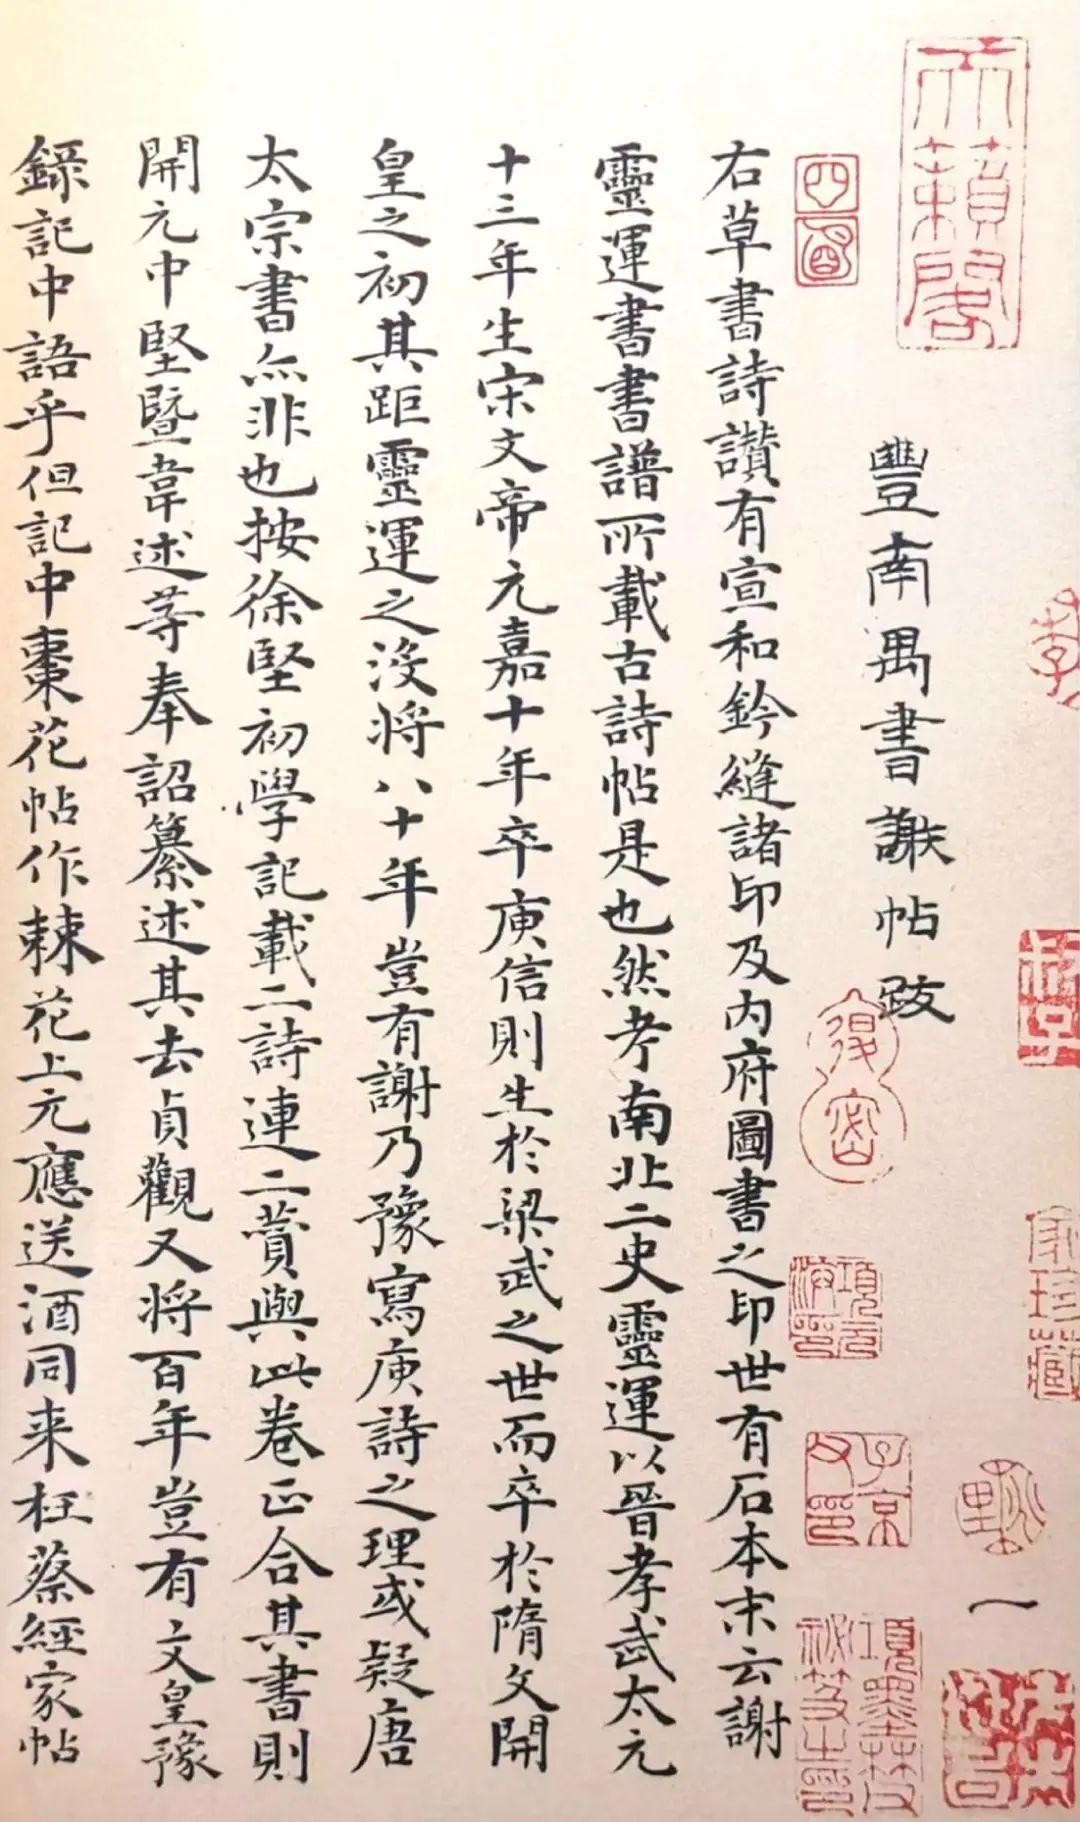 豐南禺書謝帖跋
右草書詩讚有宣和鈐縫諸印及内府圖書之印世有石本末云謝
靈運書書譜所載古詩帖是也然考南北二史靈運以晉孝武太元
十三年生宋文帝元嘉十年卒庾信則生於梁武之世而卒於隋文開
皇之初其距靈運之沒將八十年豈有謝乃豫寫庾詩之理或疑唐
太宗書亦非也按徐堅初學記載二詩連二贊與此卷正合其書則
開元中堅暨韋述等奉詔纂述其去貞觀又將百年豈有文皇豫
錄記中語乎但記中棗花帖作棘花上元應送酒同来枉蔡經家帖
天籟閣
項元汴印
子京父印
項墨林父祕笈之印
家珍藏
一